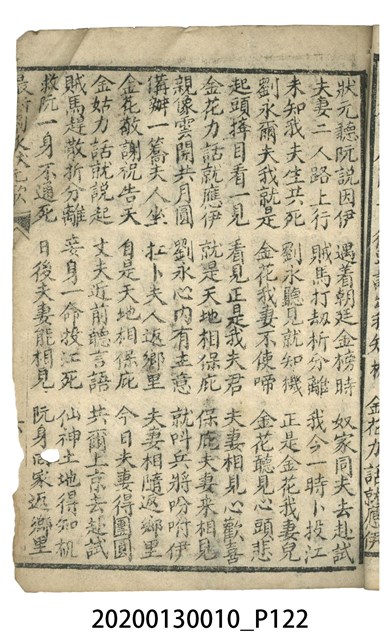 狀元聽阮說因伊　遇着朝廷金榜時　奴家同夫去赴試
夫妻二人路上行　賊馬打劫折分離　我今一時卜投江
未知我夫生共死　劉永聽見就知機　正是金花我妻兒
劉永爾夫我就是　金花我妻不使啼　金花聽見心頭悲
起頭擇目看一見　看見正是我夫君　夫妻相見心歡喜
金花力話就應伊　就是天地相保庇　保庇夫妻來相見
親像雲開共月圓　劉永心內有主意　就叫兵將吩咐伊
備辦一轎夫人坐　扛卜夫人返鄉里　夫妻相隨返鄉里
金花敬謝祝告天　自是天地相保庇　今日夫妻得團圓
金姑力話就說起　丈夫近前聽言語　共爾上京去赴試
賊馬趕散折分離　妾身一命投江死　仙神土地得知机
救阮一身不通死　日後夫妻能相見　阮身回家返鄉里
最新劉
20200130010_P122